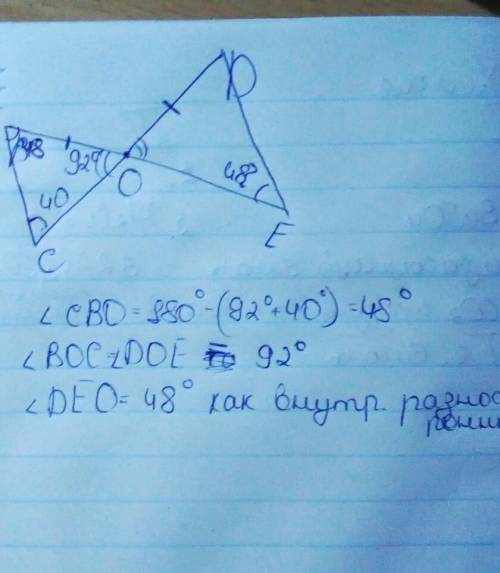 D
B 48 92°
O
40
48°
E
C
∠CBO=180°-(92°+40°)=48°
∠BOC=∠DOE 92°
∠DEO=48° как внутр.